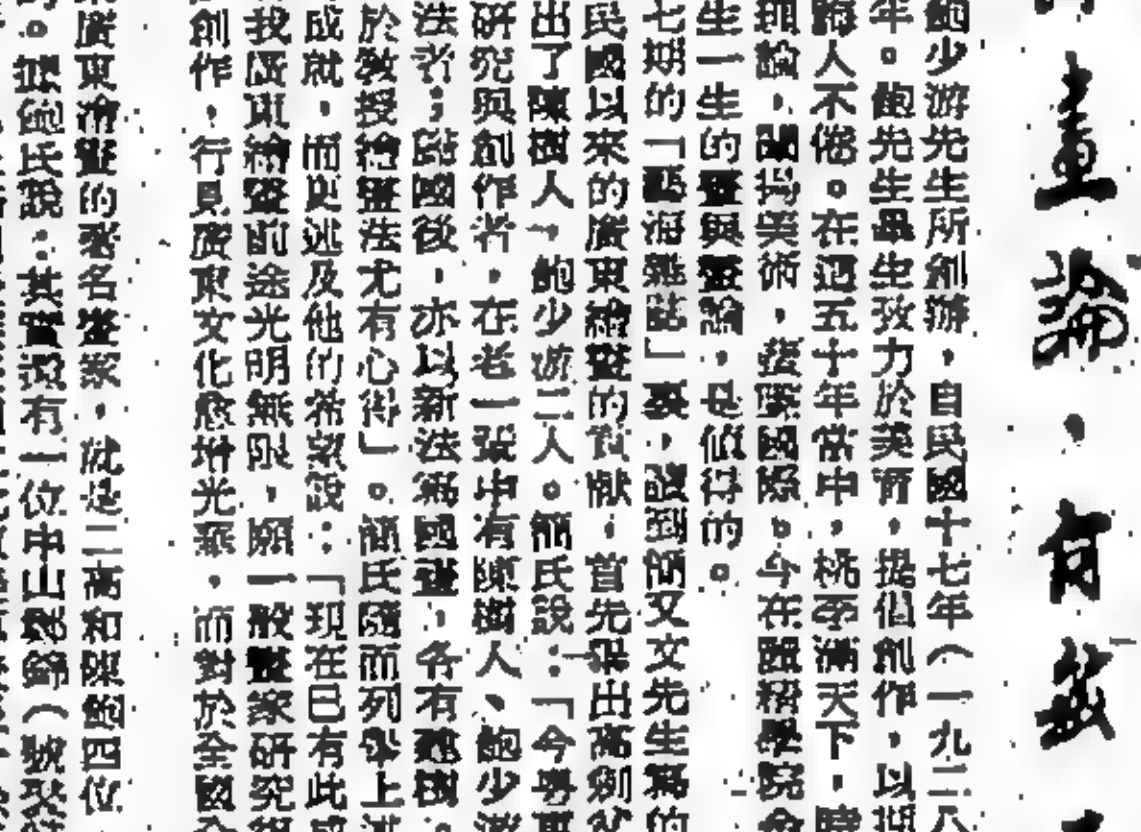 畫論，有
鮑少游先生所創辦，自民國十七年（一九二八
年。鮑先生畢生致力於美術，提倡創作，以
誨人不倦。在過五十年當中，桃李滿天下，時
理論，闡揚美術，國際。今在麗精學院會
生一生的畫與畫論，是值得的。
七期的「藝海雜誌」裏，讀到簡又文先生寫的
民國以來的廣東繪畫的貢獻；首先舉出高劍父
出了陳樹人、鮑少游二人。簡氏說：「今粵東
研究與創作者，在老一輩中有陳樹人、鮑少游
法者；歸國後，亦以新法寫國畫，各有建樹。
於教授繪畫法尤有心得」。簡氏隨而列舉上述
成就，而更述及他的希望說：「現在已有此成
我廣東繪畫前途光明無限，願一般畫家研究
創作，行見廣東文化愈增光乘，而對於全國
廣東繪畫的著名畫家，就是二高和陳鮑四位
。據鮑氏說：其實還有一位中山（號